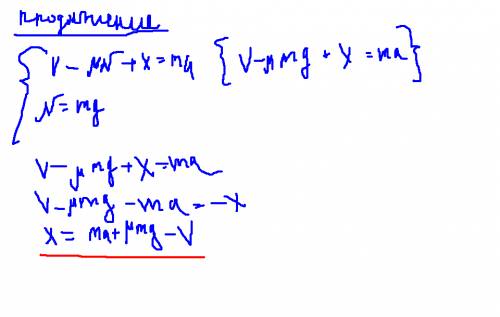 продолжение
V - μN + X = ma { V - μmg + X = ma }
N = mg
V - μmg + X = ma
V - μmg - ma = -X
X = ma + μmg - V